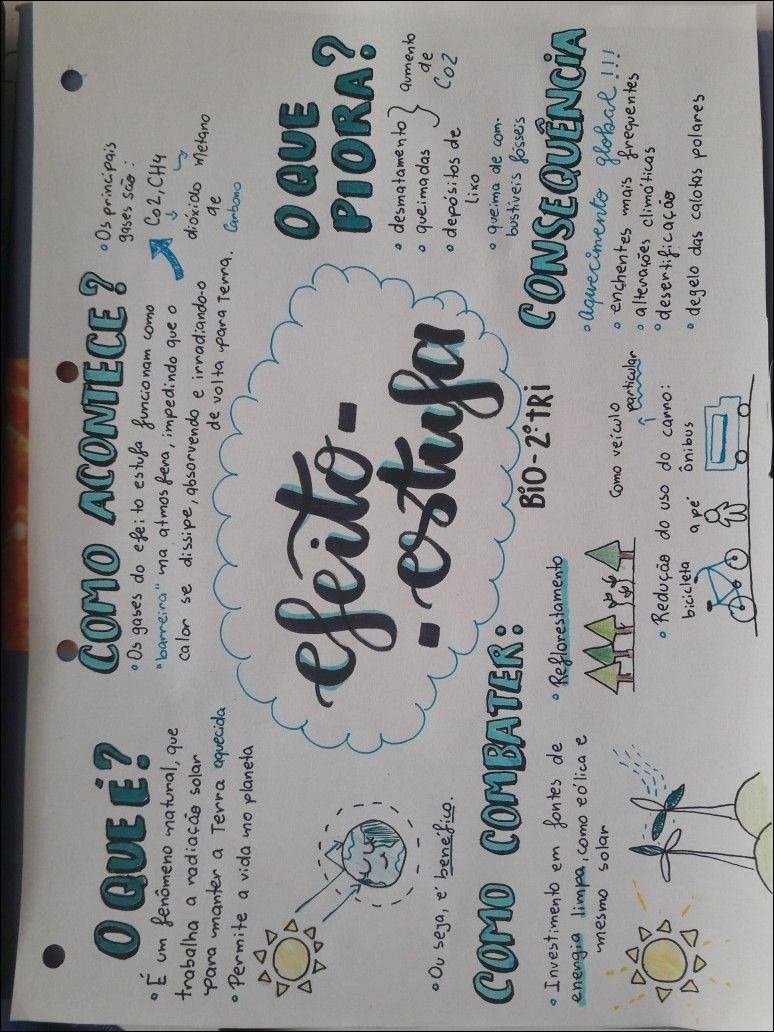 O QUE É?
• É um fenômeno natural, que
trabalha a radiação solar
para manter a Terra aquecida
• Permite a vida no planeta
• Ou seja, é benéfico.
COMO ACONTECE?
• Os gases do efeito estufa funcionam como
"barreira" na atmosfera, impedindo que o
calor se dissipe, absorvendo e irradiando-o
de volta para Terra.
• Os principais
gases são:
Co2, CH4
dióxido Metano
de
Carbono
efeito-
-estufa
BIO - 2º TRI
O QUE
PIORA?
• desmatamento
• queimadas
Aumento
de
CO2
• depósitos de
lixo
• queima de com-
bustíveis fósseis
CONSEQUÊNCIA
• Aquecimento global!!!
• enchentes mais frequentes
• alterações climáticas
• desertificação
• degelo das calotas polares
COMO COMBATER:
• Investimento em fontes de
energia limpa, como eólica e
mesmo solar
• Reflorestamento
Como veículo
particular
• Redução do uso do carro:
bicicleta a pé ônibus